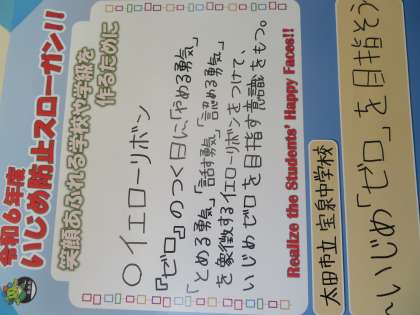 令和6年度
いじめ防止スローガン!!
笑顔あふれる学校や学級を
作るために
〇イエローリボン
『ゼロ』のつく日に「やめる勇気」
「とめる勇気」「話す勇気」「認める勇気」
を象徴するイエローリボンをつけて、
いじめゼロを目指す意識をもつ。
Realize the Students' Happy Faces!!
太田市立 宝泉中学校
～いじめ「ゼロ」を目指そう